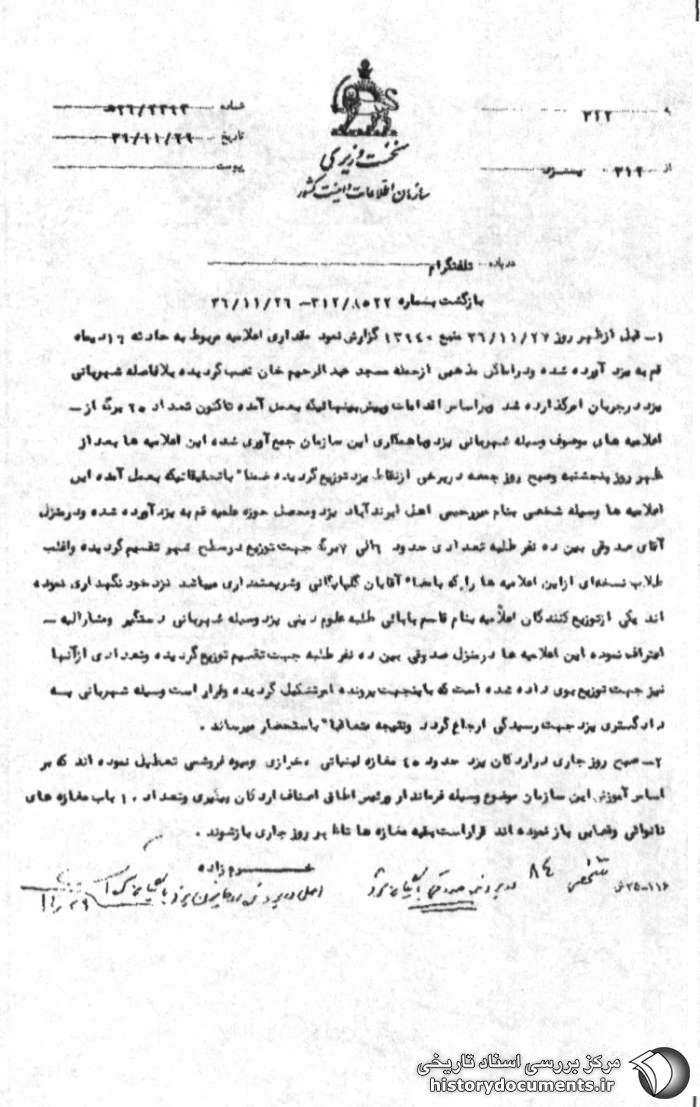 به ۳۱۲
از ۳۱۲ یـــزد
شماره ۲۶/۲۲۶۲ھ
تاریخ ۳۶/۱۱/۲۹
پیوست
نخست وزیری
سازمان اطلاعات و امنیت کشور
درباره تلفنگرام
بازگشت بشماره ۳۱۲/۸۵۲۲ – ۳۶/۱۱/۲۶
۱– قبل ازظهر روز ۳۶/۱۱/۲۷ منبع ۱۳۶۴۰ گزارش نمود مقداری اعلامیه مربوط به حادثه ۱۹ دیماه
قم به یزد آورده شده و دراماکن مذهبی ازجمله مسجد عبدالرحیم خان نصب گردیده بلافاصله شهربانی
یزد درجریان امرگذارده شد وبراساس اقدامات وپیش بینیهائیکه بعمل آمده تاکنون تعداد ۲۵ برگ از –
اعلامیه های موصوف وسیله شهربانی یزد وباهمکاری این سازمان جمع آوری شده این اعلامیه ها بعد از
ظهر روز پنجشنبه وصبح روز جمعه دربرخی ازنقاط یزد توزیع گردیده ضمنا" باتحقیقاتیکه بعمل آمده این
اعلامیه ها وسیله شخصی بنام میررحیمی اهل ایرندآباد یزد ومحصل حوزه علمیه قم به یزد آورده شده ودرمنزل
آقای صدوقی بین ده نفر طلبه تعدادی حدود ۶ الی ۷ برگ جهت توزیع درسطح شهر تقسیم گردیده واغلب
طلاب نسخه‌ای ازاین اعلامیه ها را که بامضاء آقایان گلپایگانی وشریعتمداری میباشد نزد خود نگهداری نموده
اند یکی ازتوزیع کنندگان اعلامیه بنام قاسم بابائی طلبه علوم دینی یزد وسیله شهربانی دستگیر ومشارالیه –
اعتراف نموده این اعلامیه ها درمنزل صدوقی بین ده نفر طلبه جهت تقسیم توزیع گردیده وتعدادی ازآنها
نیز جهت توزیع بوی داده شده است که باینجهت پرونده امرتشکیل گردیده وقرار است وسیله شهربانی بــه
دادگستری یزد جهت رسیدگی ارجاع گردد ونتیجه متعاقبا" باستحضار میرساند .
۲– صبح روز جاری دراردکان یزد حدود ۴۵ مغازه لبنیاتی ، خرازی ومیوه فروشی تعطیل نموده اند که بر
اساس آموزش این سازمان موضوع وسیله فرماندار ورئیس اطاق اصناف اردکان پیگیری وتعداد ۱۰ باب مغازه های
نانوائی وقصابی باز نموده اند قراراست بقیه مغازه ها تاظهر روز جاری بازشوند .
۱۱۶–۲۵ش
شخصی ۸۴
در پرونده صدوقی بایگانی شود
۲۹ر۱۱
مرکز بررسی اسناد تاریخی
historydocuments.ir